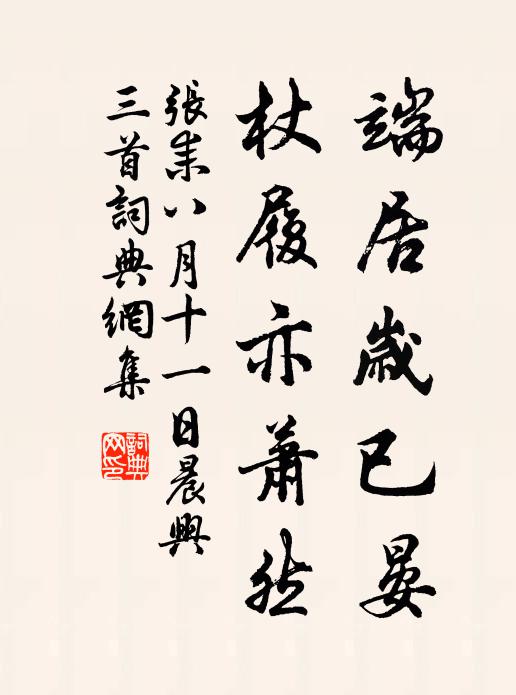 端居歲已晏
杖履亦蕭然
張耒八月十一日晨興
三首詞典網集
詞典网印